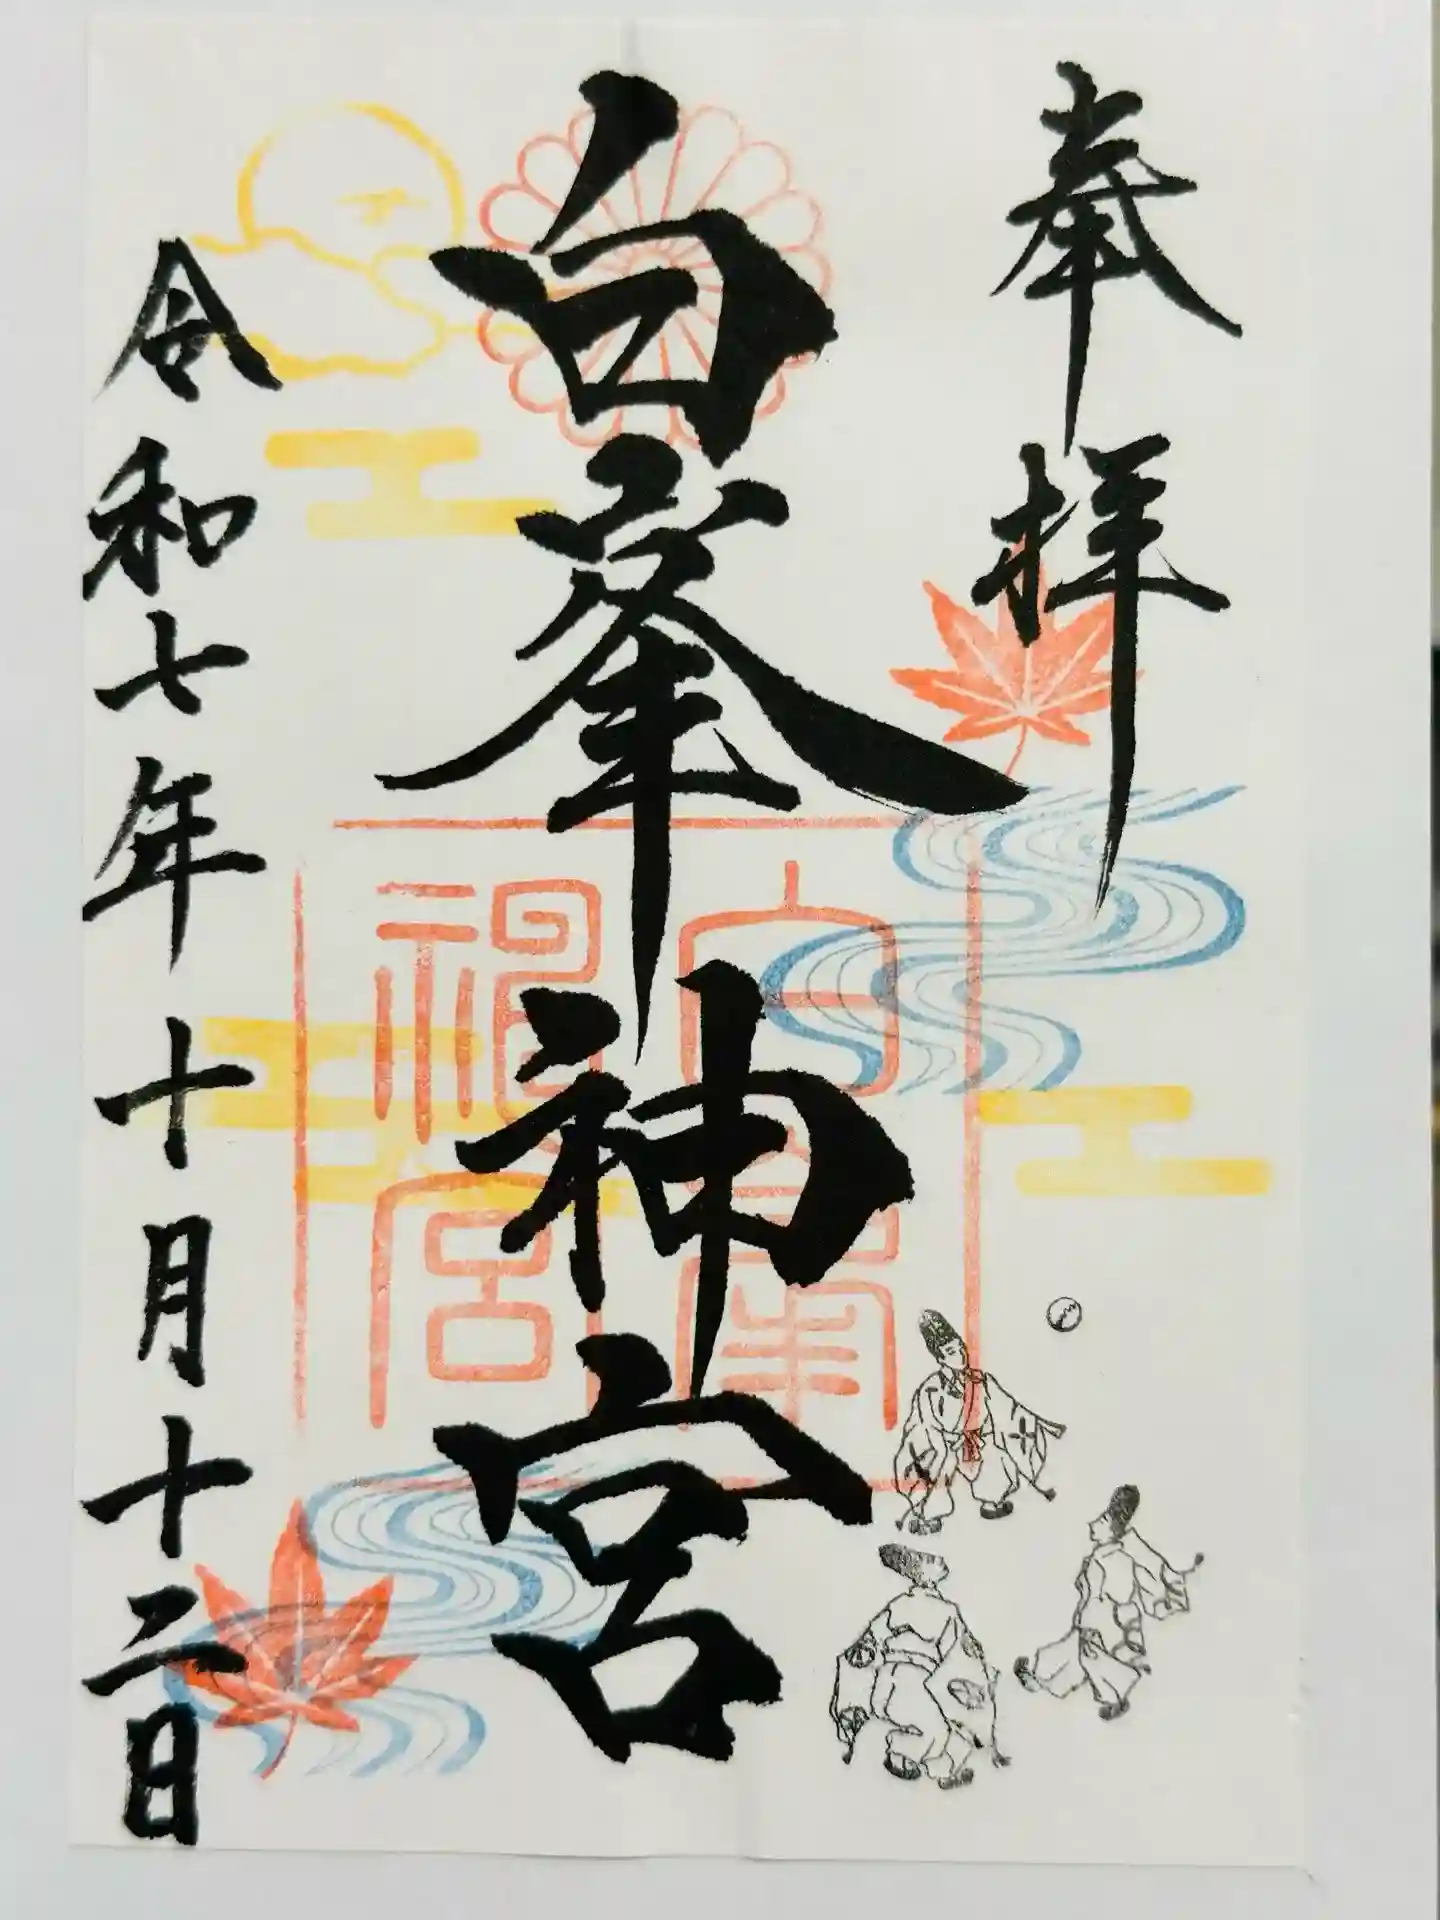 奉拝
白峯神宮
白峯神宮
令和七年十月十二日